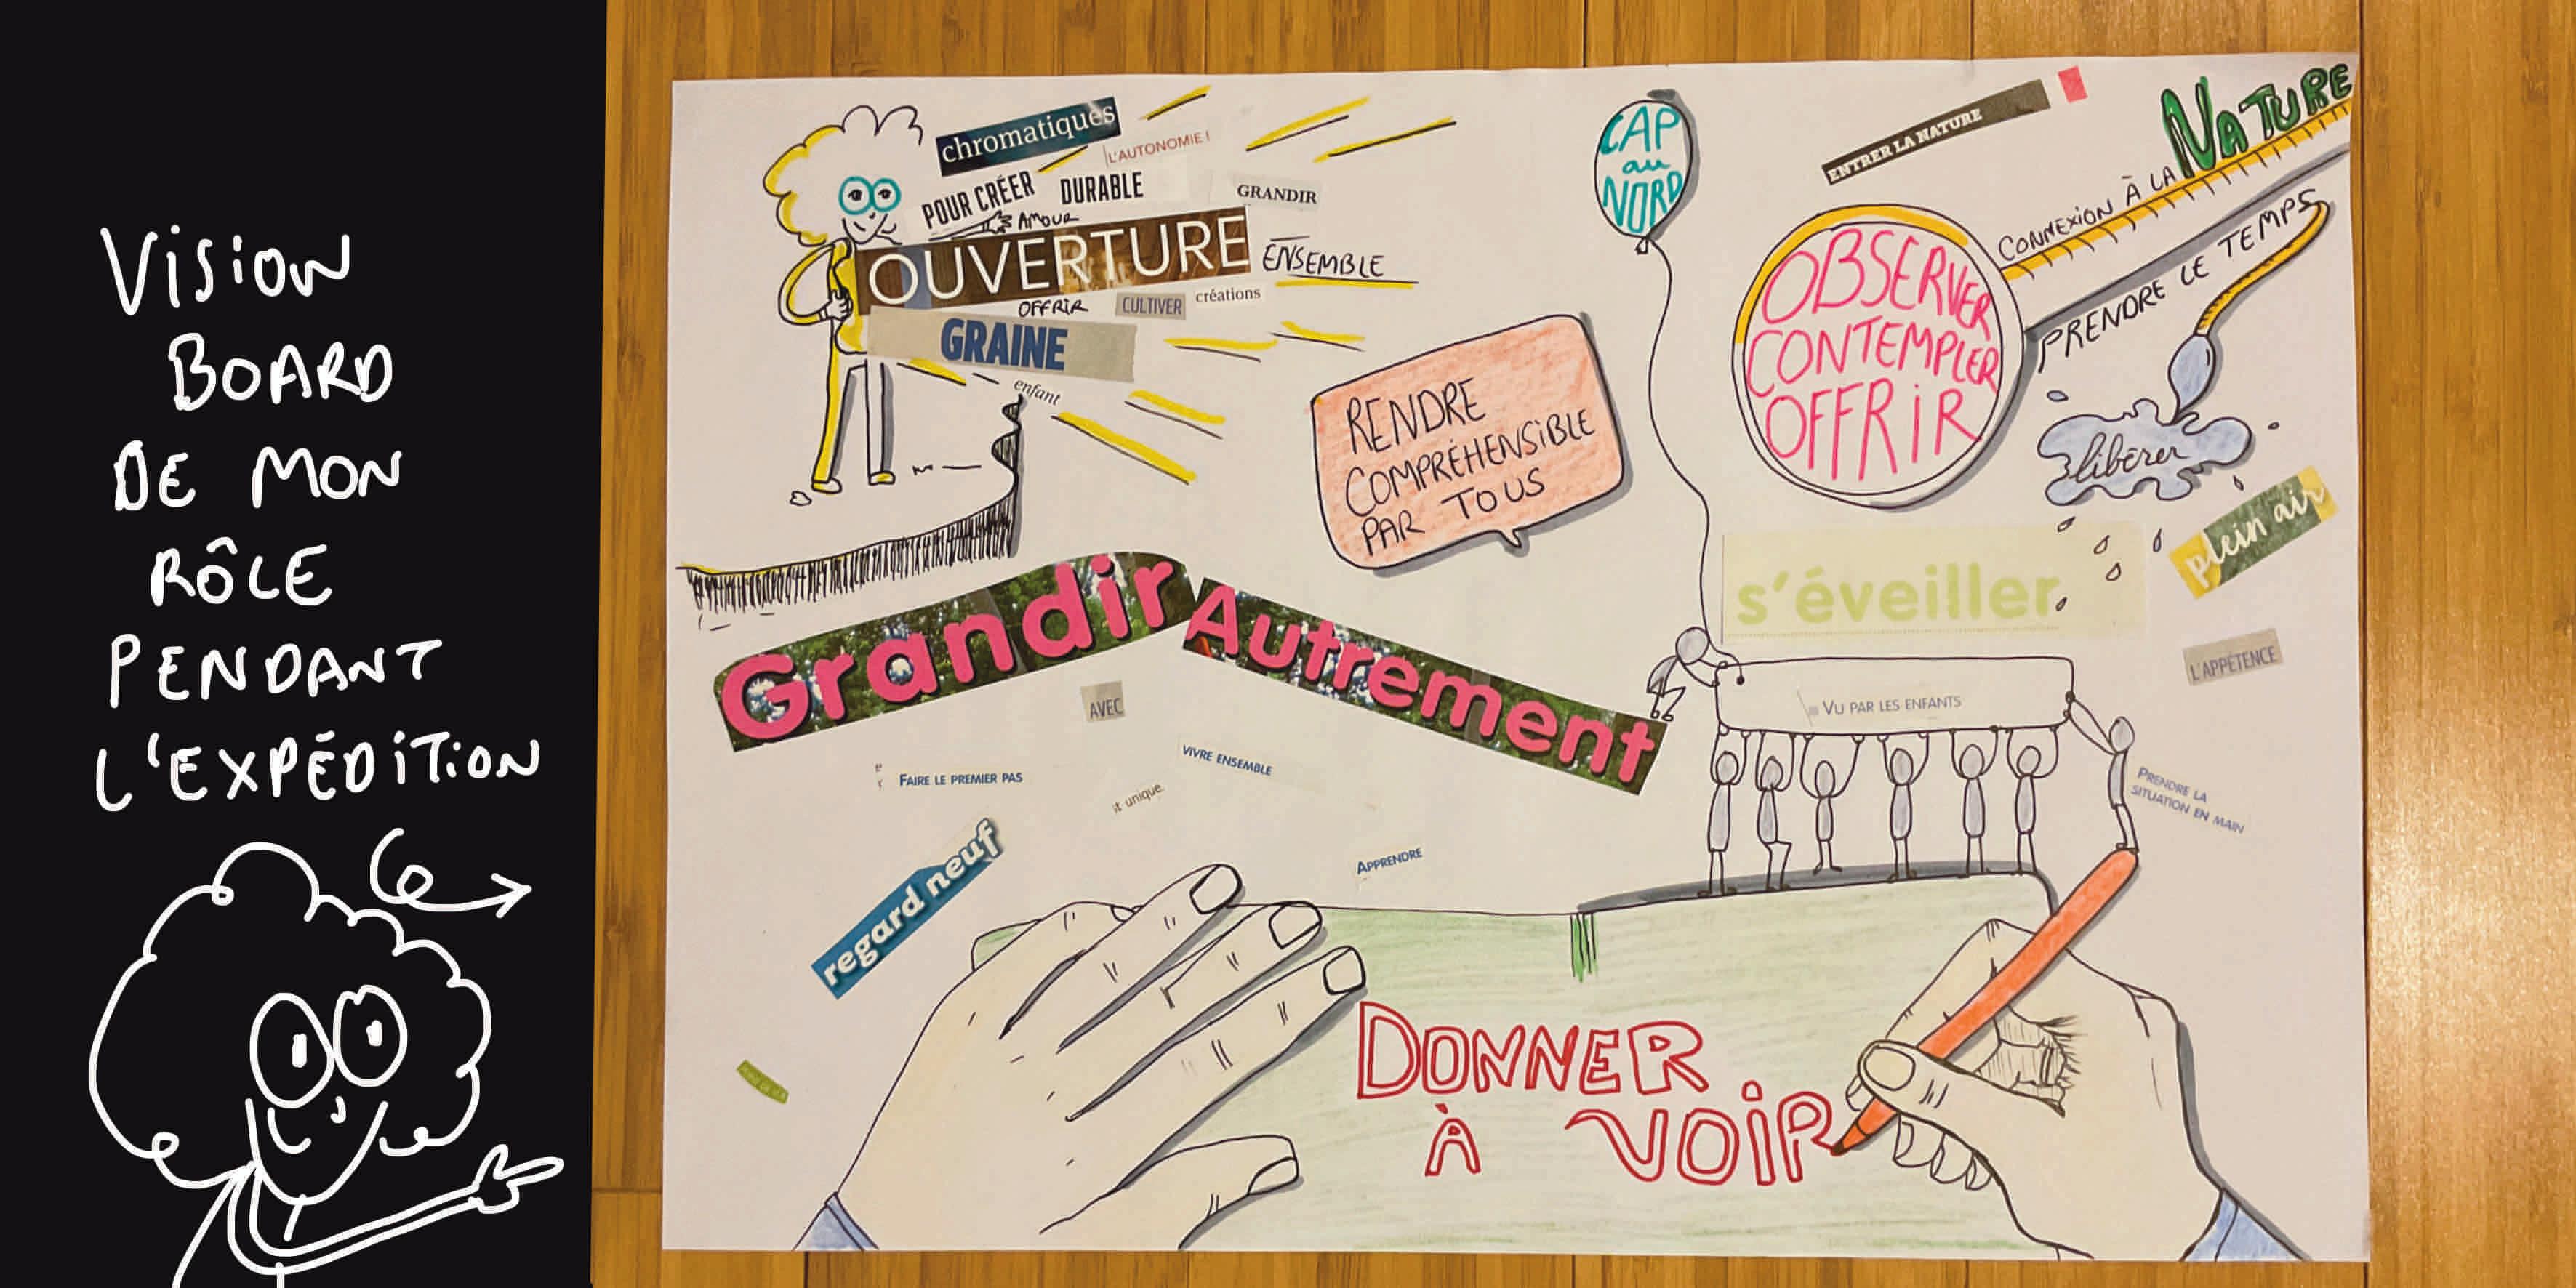 VISION
BOARD
DE MON
RÔLE
PENDANT
L'EXPÉDITION
chromatiques
L'AUTONOMIE !
POUR CRÉER
DURABLE
AMOUR
GRANDIR
OUVERTURE
ENSEMBLE
OFFRIR
CULTIVER
créations
GRAINE
enfant
CAP
au
NORD
RENDRE
COMPRÉHENSIBLE
PAR TOUS
ENTRER LA NATURE
CONNEXION À LA NATURE
PRENDRE LE TEMPS
OBSERVER
CONTEMPLER
OFFRIR
libérer
plein air
s'éveiller
L'APPÉTENCE
Grandir Autrement
AVEC
FAIRE LE PREMIER PAS
VIVRE ENSEMBLE
it unique
APPRENDRE
regard neuf
VU PAR LES ENFANTS
PRENDRE LA
SITUATION EN MAIN
DONNER
À VOIR